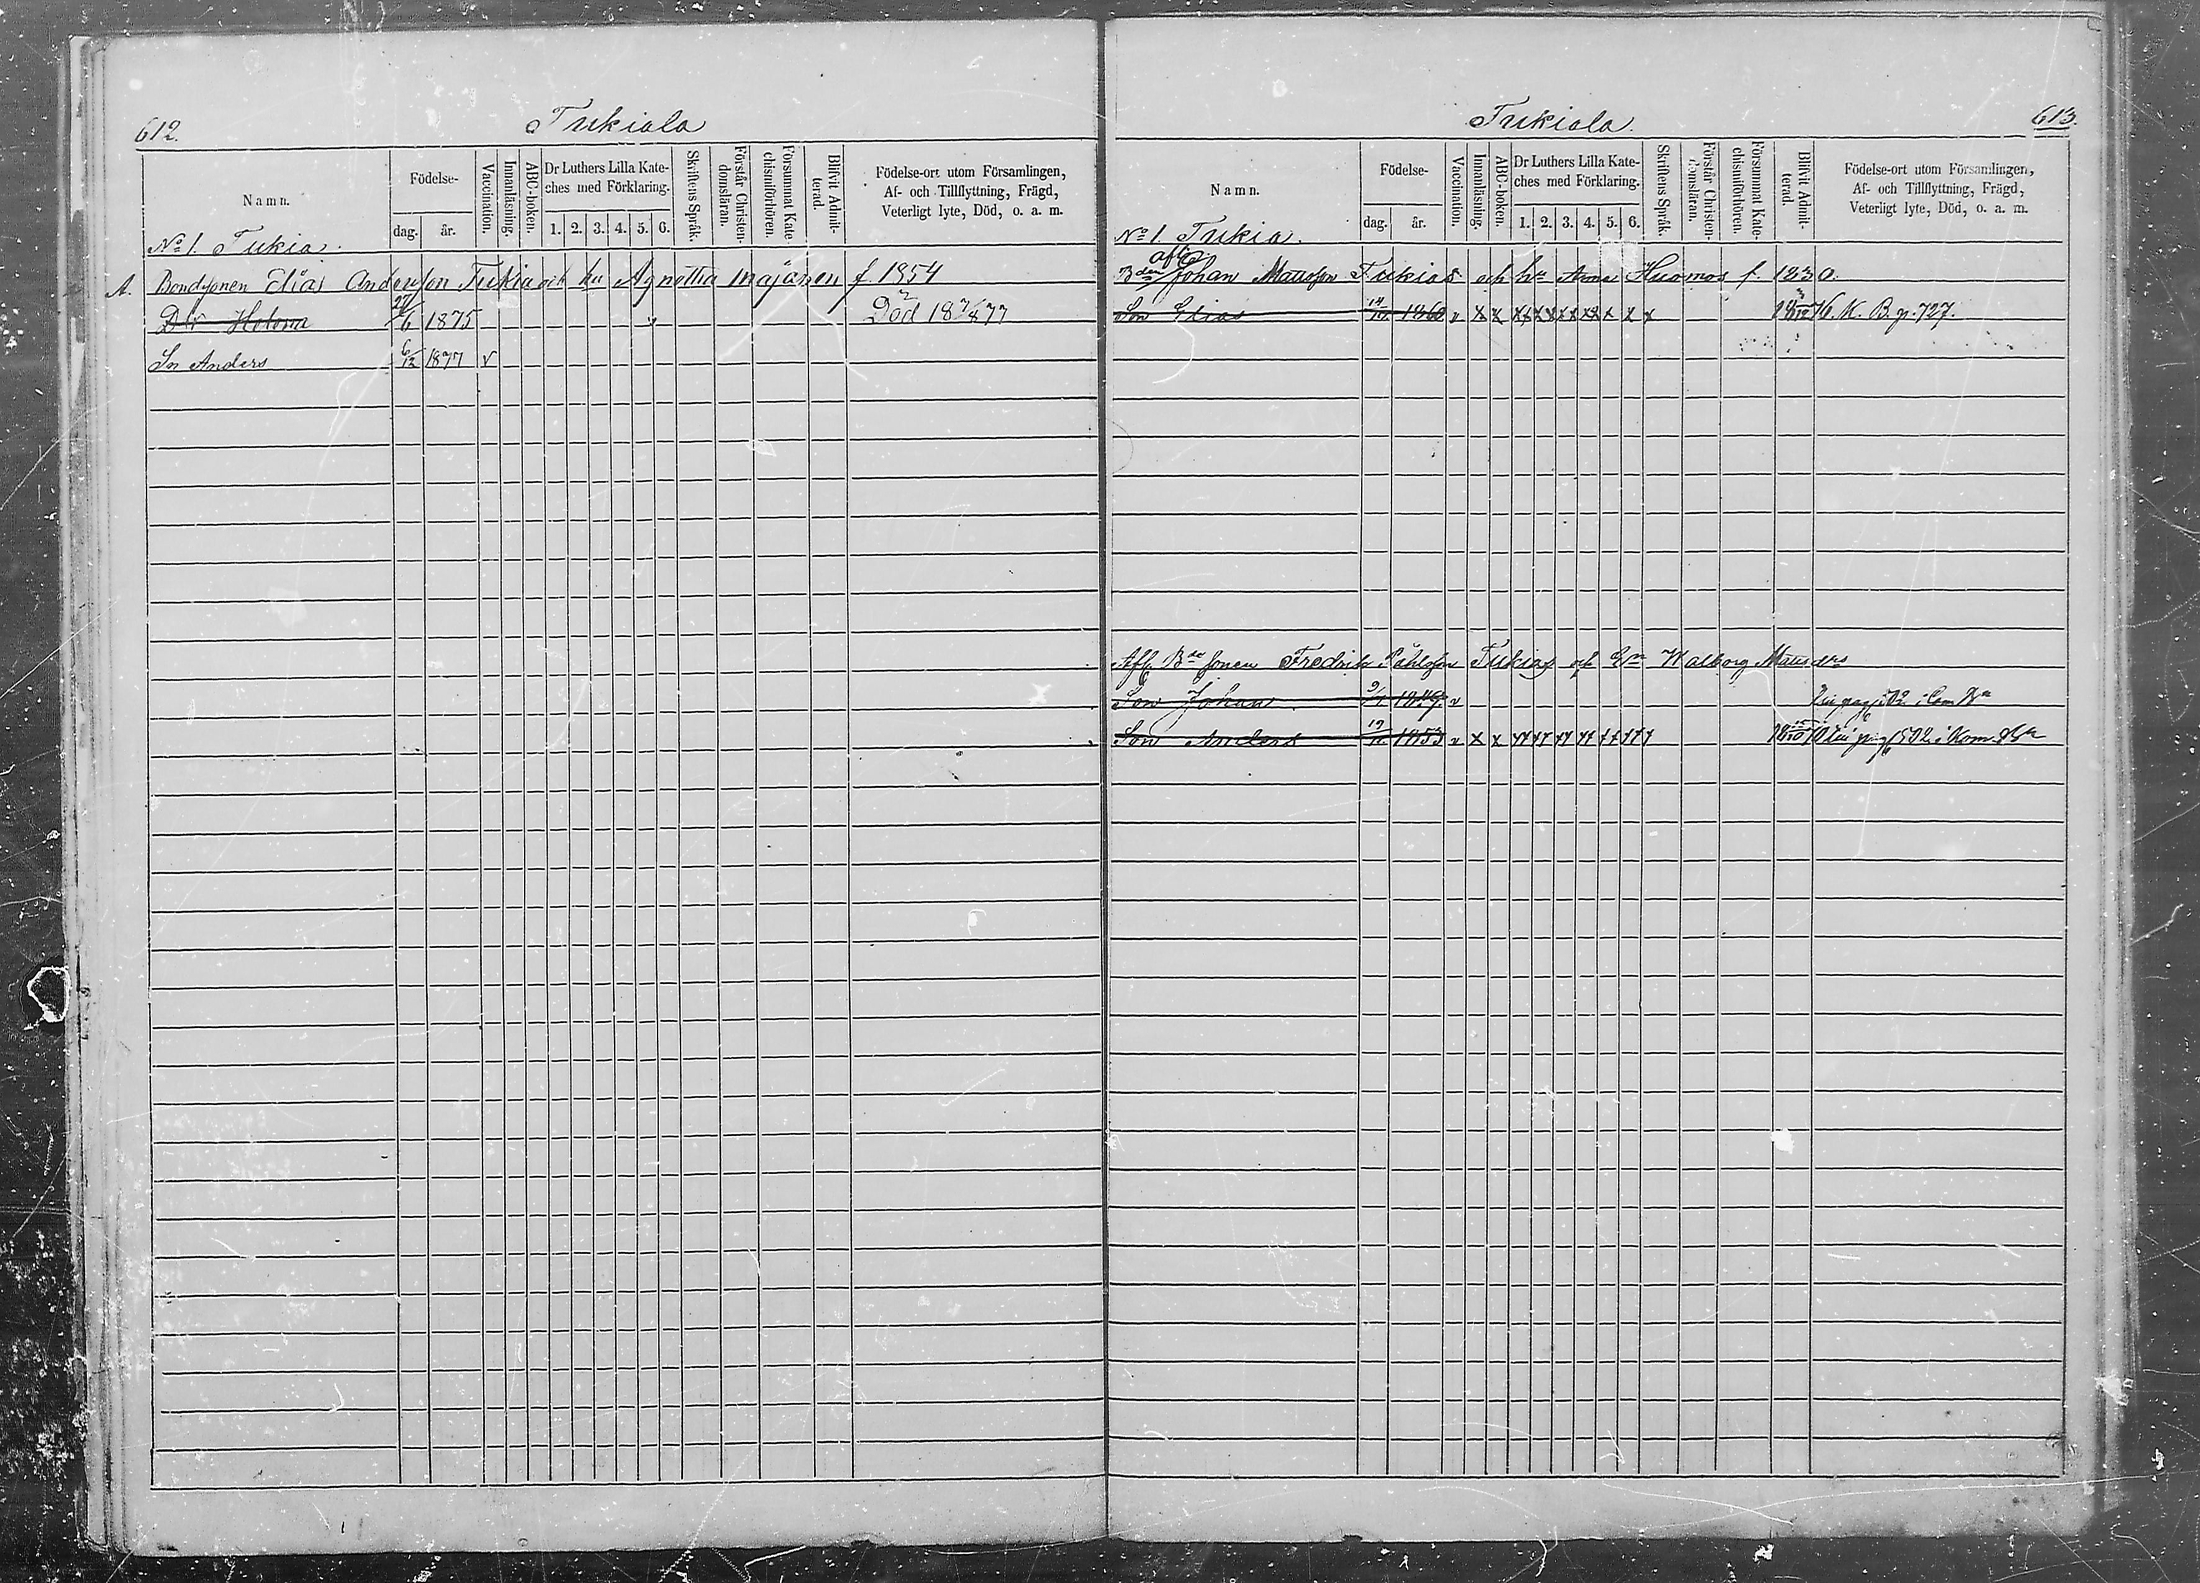 612.
Tukiala
Namn.
Födelse-
dag.
år.
Vaccination.
Innanläsning.
ABC-boken.
Dr Luthers Lilla Kate-
ches med Förklaring.
1. 2. 3. 4. 5. 6.
Skriftens Språk.
Förstår Christen-
domsläran.
Försummat Kate-
chismiförhören.
Blifvit Admit-
terad.
Födelse-ort utom Församlingen,
Af- och Tillflyttning, Frägd,
Veterligt lyte, Död, o. a. m.
No 1. Tukia.
A. Bondsonen Elias Andersson Tukia och hu Agnetha Majanen f. 1854
Dtr Helena 6 1875 Död 1877
Sn Anders 6/12 1877 v
613.
Tukiala.
Namn.
Födelse-
dag.
år.
Vaccination.
Innanläsning.
ABC-boken.
Dr Luthers Lilla Kate-
ches med Förklaring.
1. 2. 3. 4. 5. 6.
Skriftens Språk.
Förstår Christen-
domsläran.
Försummat Kate-
chismiförhören.
Blifvit Admit-
terad.
Födelse-ort utom Församlingen,
Af- och Tillflyttning, Frägd,
Veterligt lyte, Död, o. a. m.
No 1. Tukia.
afl.
Bden Johan Matsson Tukias och hu Anna Huomos f. 1830.
Son Elias 14/10 1860 v x x K. B. p. 727.
Afl. Bde sonen Fredrik Påhlsson Tukias och En Walborg Matsdrs
Son Johan 1849 v
Son Anders 19 1853 v x x pag 502 i Kom. Bkn